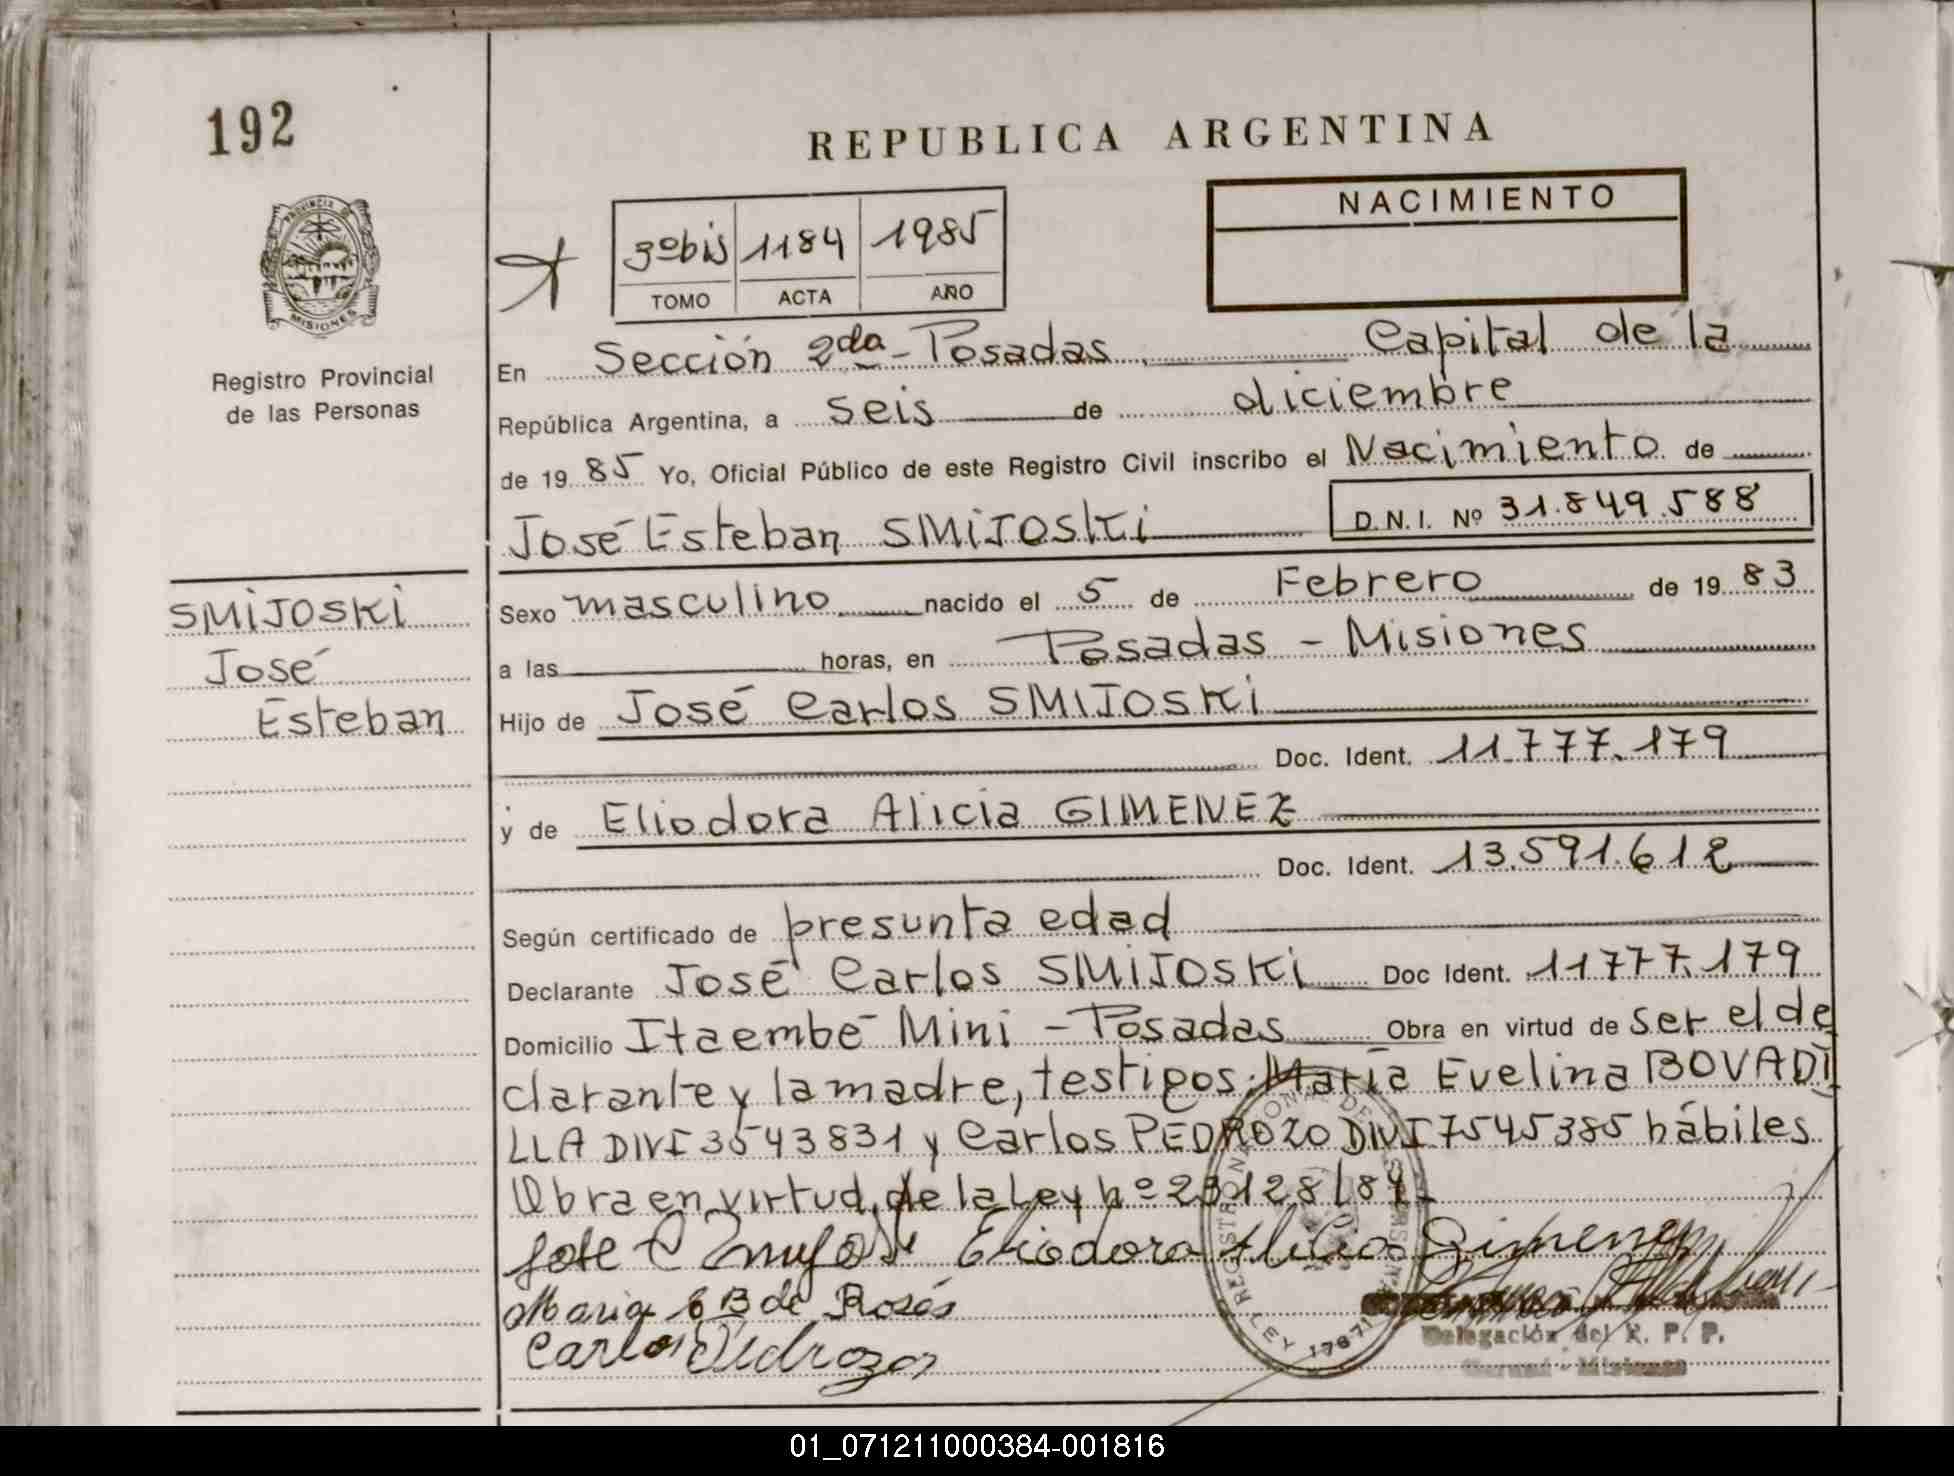 192
REPUBLICA ARGENTINA
PROVINCIA DE
MISIONES
Registro Provincial
de las Personas
3º bis 1184 1985
TOMO ACTA AÑO
NACIMIENTO
En Sección 2da - Posadas Capital de la
República Argentina, a seis de diciembre
de 19 85 Yo, Oficial Público de este Registro Civil inscribo el Nacimiento de
José Esteban SMIJOSKI D.N.I. Nº 31.849.588
SMIJOSKI
José
Esteban
Sexo masculino nacido el 5 de Febrero de 19 83
a las horas, en Posadas - Misiones
Hijo de José Carlos SMIJOSKI
Doc. Ident. 11.777.179
y de Eliodora Alicia GIMENEZ
Doc. Ident. 13.591.612
Según certificado de presunta edad
Declarante José Carlos SMIJOSKI Doc Ident. 11777.179
Domicilio Itaembé Mini - Posadas Obra en virtud de ser el de
clarante y la madre, testigos: María Evelina BOVADI
LLA DNI 3543831 y Carlos PEDROZO DNI 7545385 hábiles
Obra en virtud de la Ley nº 23128/84-
José C Eliodora Alicia Gimenez
Maria E B de Rosés
Carlos Pedrozo
Delegación del R. P. P.
Misiones
REGISTRO NACIONAL DE LAS PERSONAS
LEY 17671
01_071211000384-001816